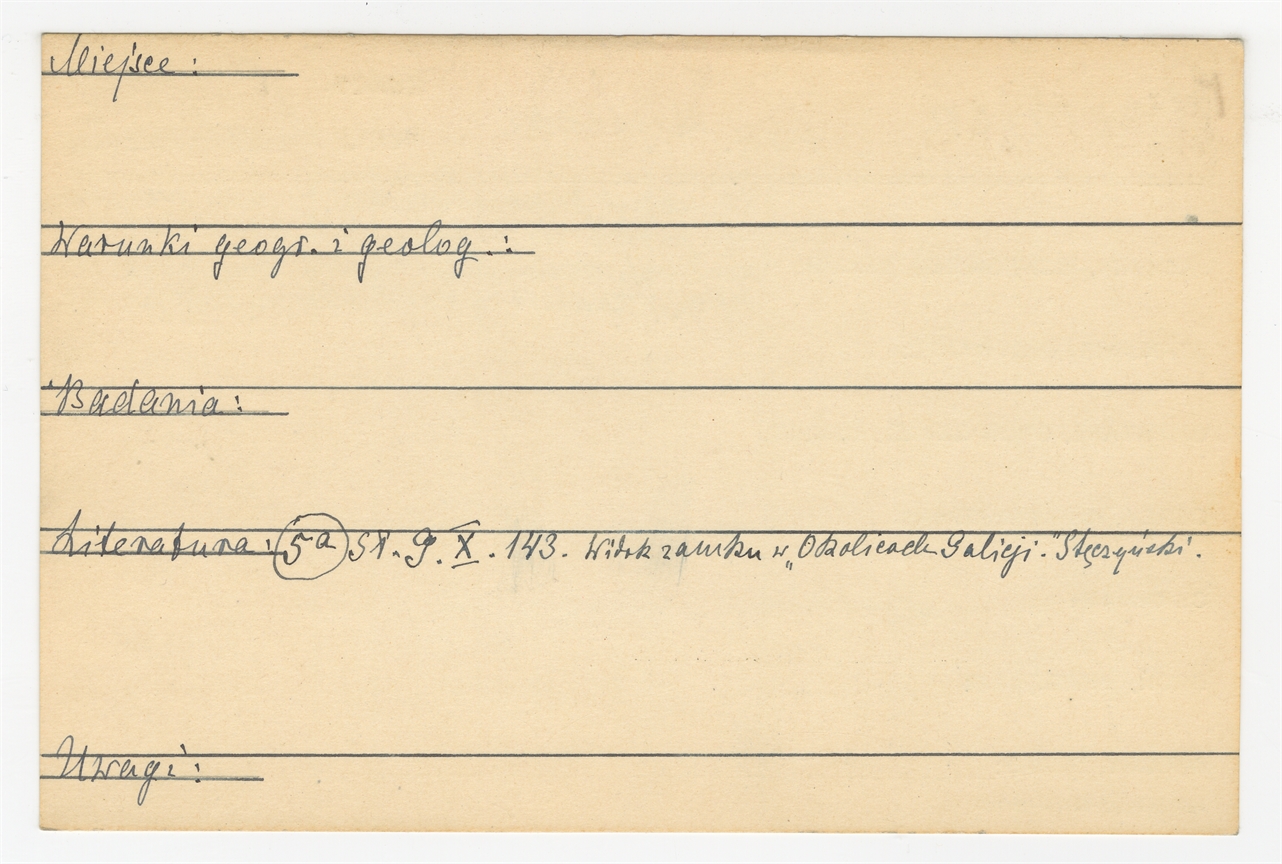 Miejsce :
Warunki geogr. i geolog. :
Badania :
Literatura : 5a Sł. G. X. 143. Widok zamku w „Okolicach Galicji." Stęczyński.
Uwagi :